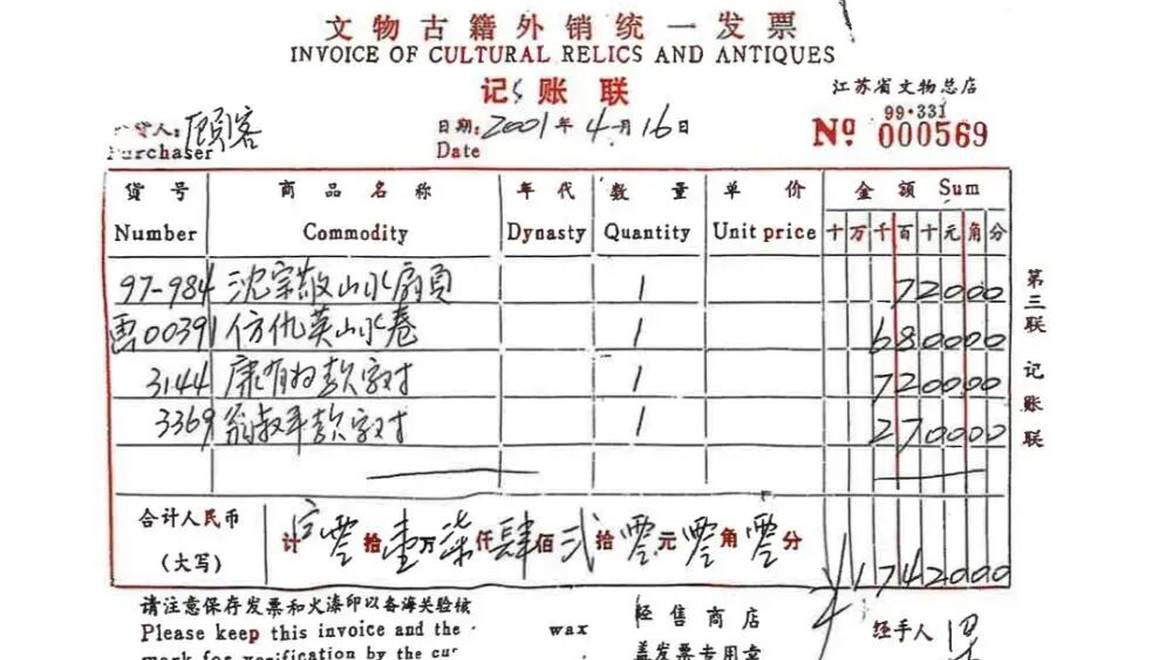 文物古籍外销统一发票
INVOICE OF CULTURAL RELICS AND ANTIQUES
记账联
江苏省文物总店
99·331
Nº 000569
货人: 顾客
Purchaser
日期: 2001年4月16日
Date
货号 商品名称 年代 数量 单价 金额 Sum
Number Commodity Dynasty Quantity Unit price 十万千百十元角分
97-984 沈宗敬山水扇页 1 72000
00391 仿仇英山水卷 1 680000
3144 康有为款字对 1 720000
3369 翁叔平款字对 1 270000
合计人民币
(大写)
计 零拾壹万柒仟肆佰贰拾零元零角零分
¥1742000
第三联 记账联
请注意保存发票和火漆印以备海关验核
Please keep this invoice and the wax
mark for verification by the cu
经售商店
盖发票专用章
经手人